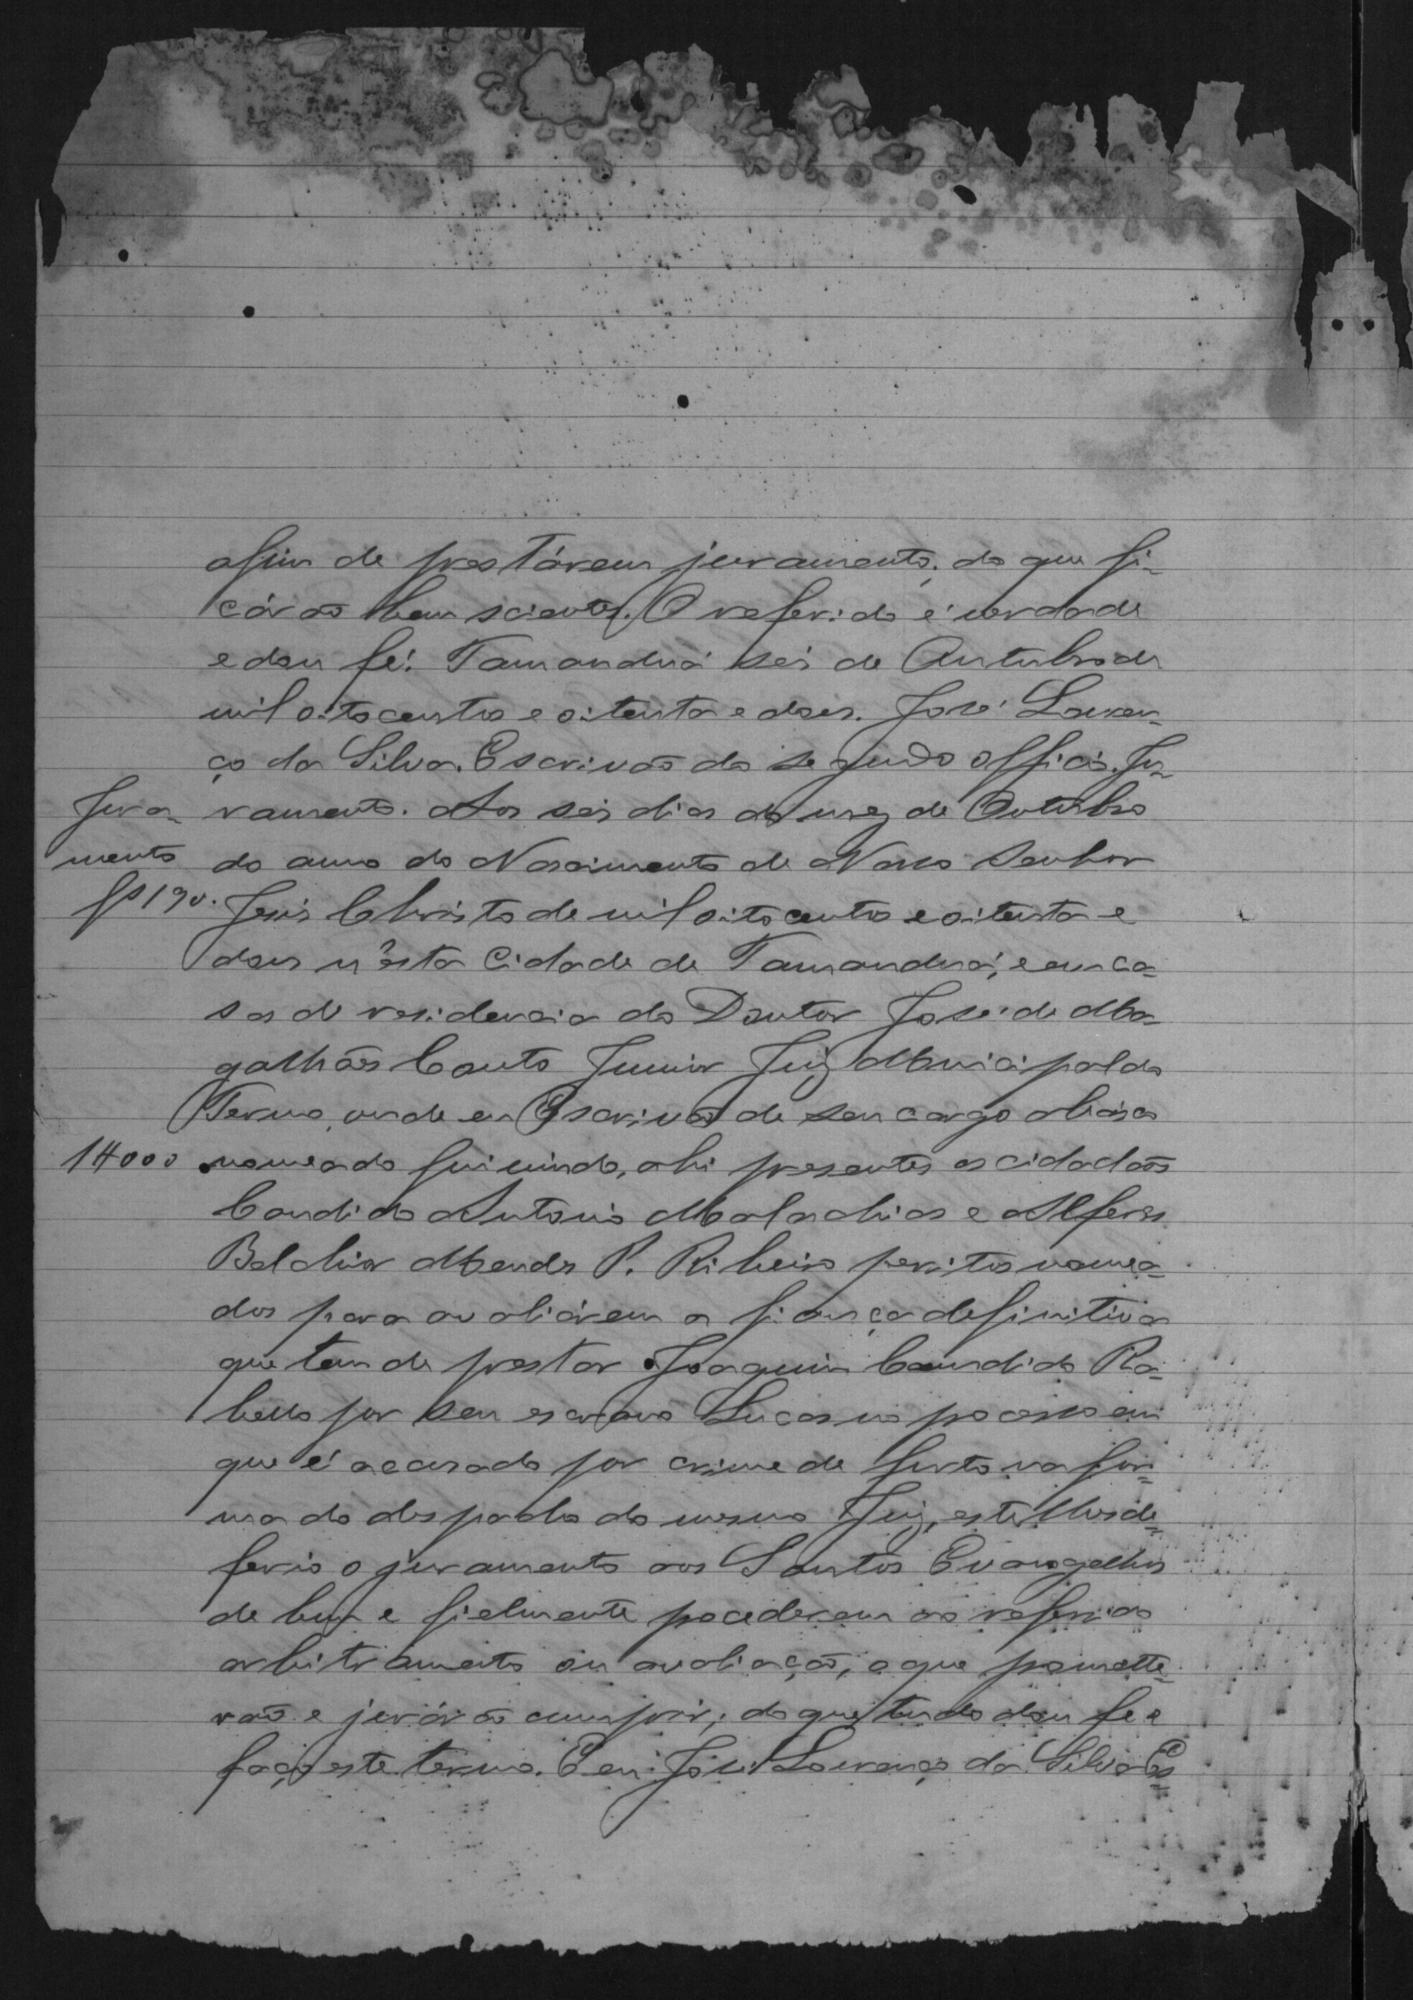 afim de prestárem juramento; do que fi-
cárão bem scientes. O referido é verdade
e dou fé. Tamanduá seis de Outubro de
mil oitocentos e oitenta e dois. José Louren-
ço da Silva. Escrivão do segundo officio. Ju-
Jura- ramento. Aos seis dias do mez de Outubro
mento do anno do Nascimento de Nosso Senhor
Jesus Christo de mil oito centos e oitenta e
dous n'esta Cidade de Tamanduá, e em ca-
sas de residencia do Doutor José de Ma-
galhães Couto Junior Juiz Municipal do
Termo, onde eu Escrivão de seu cargo abaixo
1#000 nomeado fui vindo, ahi presentes os cidadãos
Candido Antonio Malachias e Alferes
Belchior Mendes P. Ribeiro peritos nomea-
dos para avaliárem a fiança definitiva
que tem de prestar Joaquim Candido Ra-
bello por seu escravo Lucas no pocesso em
que é accusado por crime de furto na for-
ma do despacho do mesmo Juiz, este lhes de-
ferio o juramento aos Santos Evangelhos
de bem e fielmente procederem ao referido
arbitramento ou avaliação, o que promette-
rão e jurárão cumprir; do que tudo dou fé e
faço este termo. E eu José Lourenço da Silva Es-